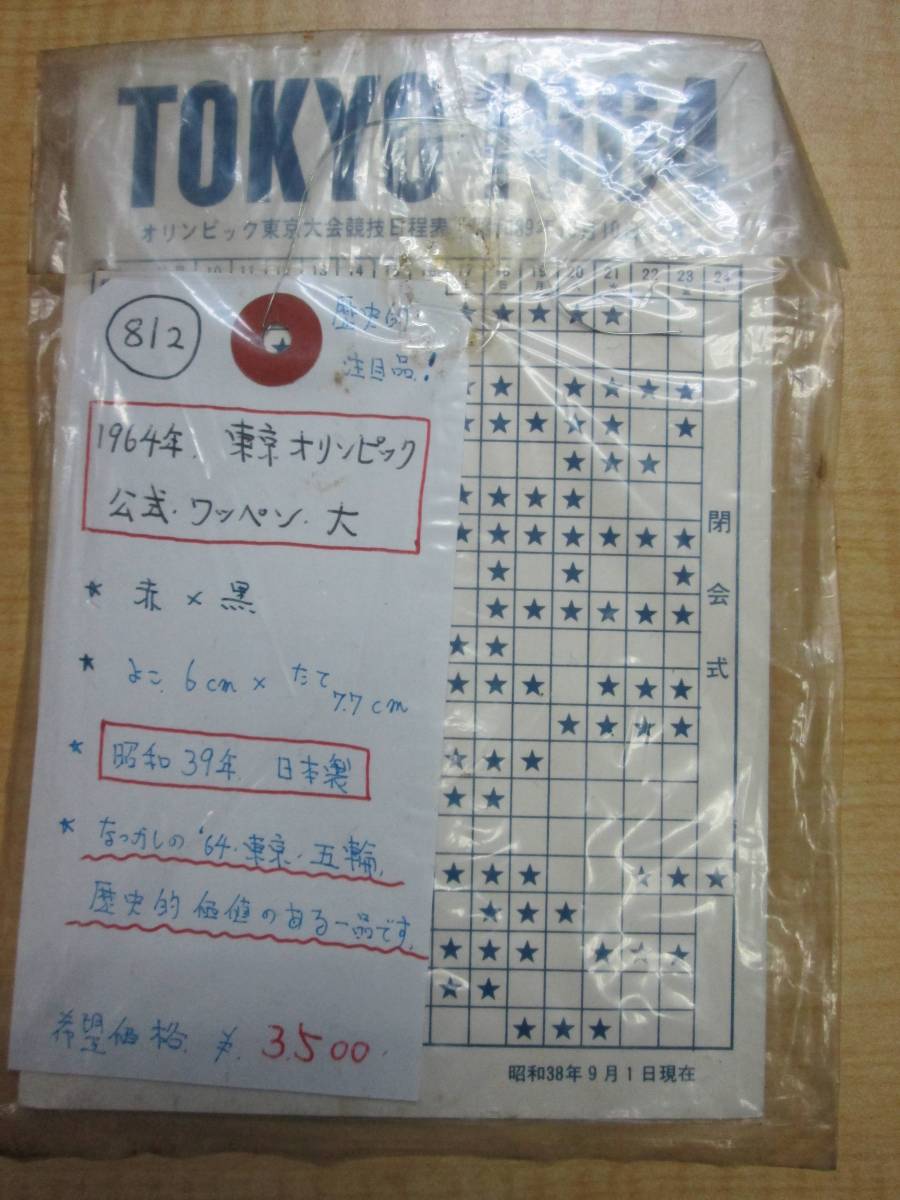 TOKYO 1964
オリンピック東京大会競技日程表
10 11 12 13 14 15 16 17 18 19 20 21 22 23 24
日 月 火 水
812
歴史的
注目品!
1964年. 東京オリンピック
公式・ワッペン・大
* 赤 × 黒
* よこ. 6cm × たて 7.7cm
* 昭和39年 日本製
* なつかしの '64・東京・五輪,
歴史的価値のある一品です.
希望価格. ¥. 3500
閉会式
昭和38年9月1日現在